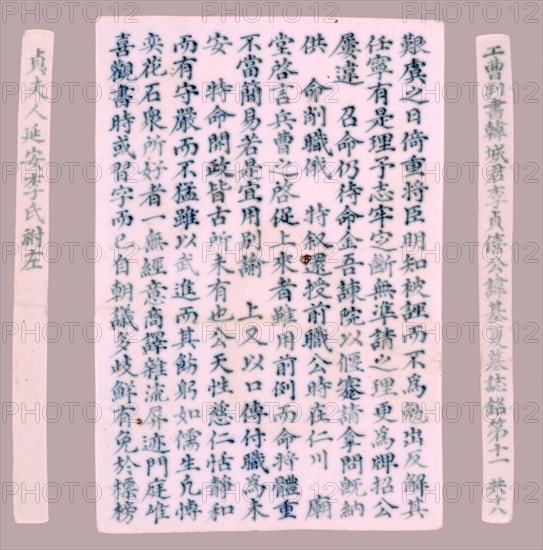 工曹判書韓城君李貞僖公諱基夏墓誌銘第十一 共十八
艱虞之日倚重將臣明知被誣而不爲
出反解其
任寧有是理予志牢定斷無準請之理更爲牌招公
屢違 召命仍待命金吾諫院以偃蹇請拿問旣納
供 命削職俄 特敍還授前職公時在仁川 廟
堂啓言兵曹之啓促上來者雖用前例而命將體重
不當簡易若是宜用別諭 上又以口傳付職爲未
安 特命開政皆古所未有也公天性慈仁恬靜和
而有守嚴而不猛雖以武進而其飭躬如儒生凡博
奕花石衆所好者一無經意商譯雜流屛迹門庭唯
喜觀書時或習字而已自朝議多歧鮮有免於標榜
貞夫人延安李氏祔左
PHOTO